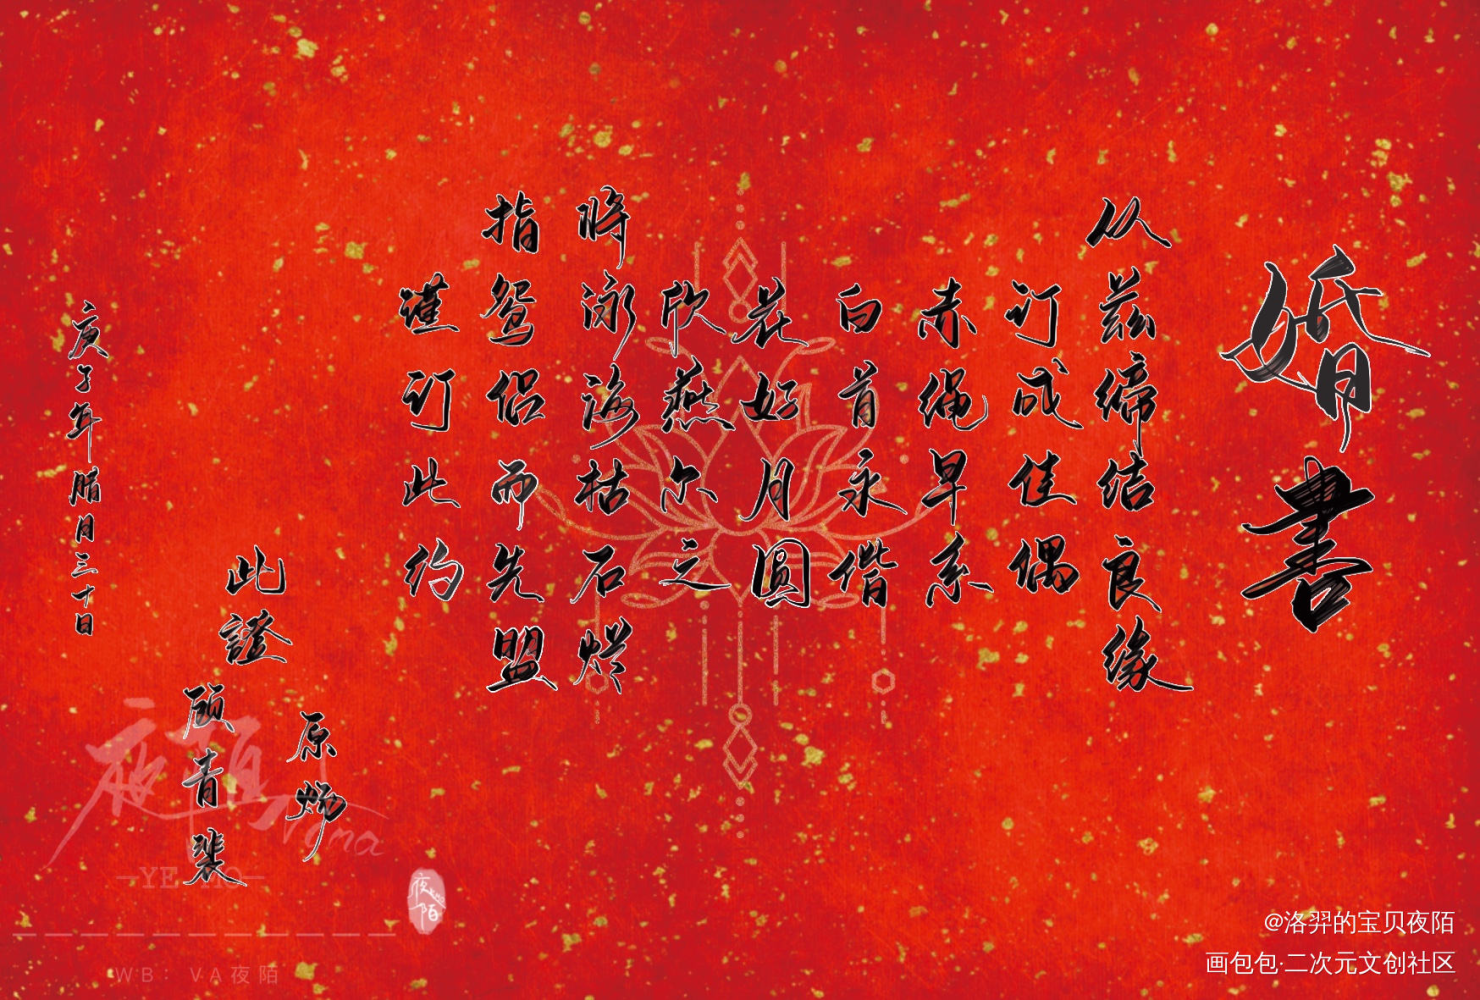 婚書
从兹缔结良缘
订成佳偶
赤绳早系
白首永偕
花好月圆
欣燕尔之
将泳海枯石烂
指鸳侣而先盟
谨订此约
此證
原炀
顾青裴
庚子年腊月三十日
夜陌
Vama
—YE MO—
夜陌
WB：VA夜陌
@洛羿的宝贝夜陌
画包包·二次元文创社区